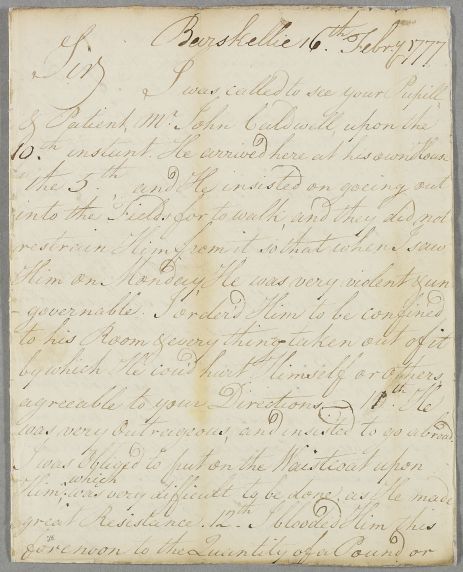 Beirskellie 16th Febry 1777
Sir
I was called to see your Pupill
& Patient Mr John Caldwell upon the
10th instant. He arrived here at his own House
the 5th and He insisted on goeing out
into the Fields for to walk, and they did not
restrain Him from it so that when I saw
Him on Monday He was very violent & un
-governable. I orderd Him to be confined
to his Room & every thing taken out of it
by which He coud hurt Himself or others
agreeable to your Directions — 11th He
was very Outrageous, and insisted to go abroad
I was Obliged to put on the Waistcoat upon
Him, which was very difficult to be done, as He made
great Resistance. 12th I blooded Him this
forenoon to the Quantity of a Pound or